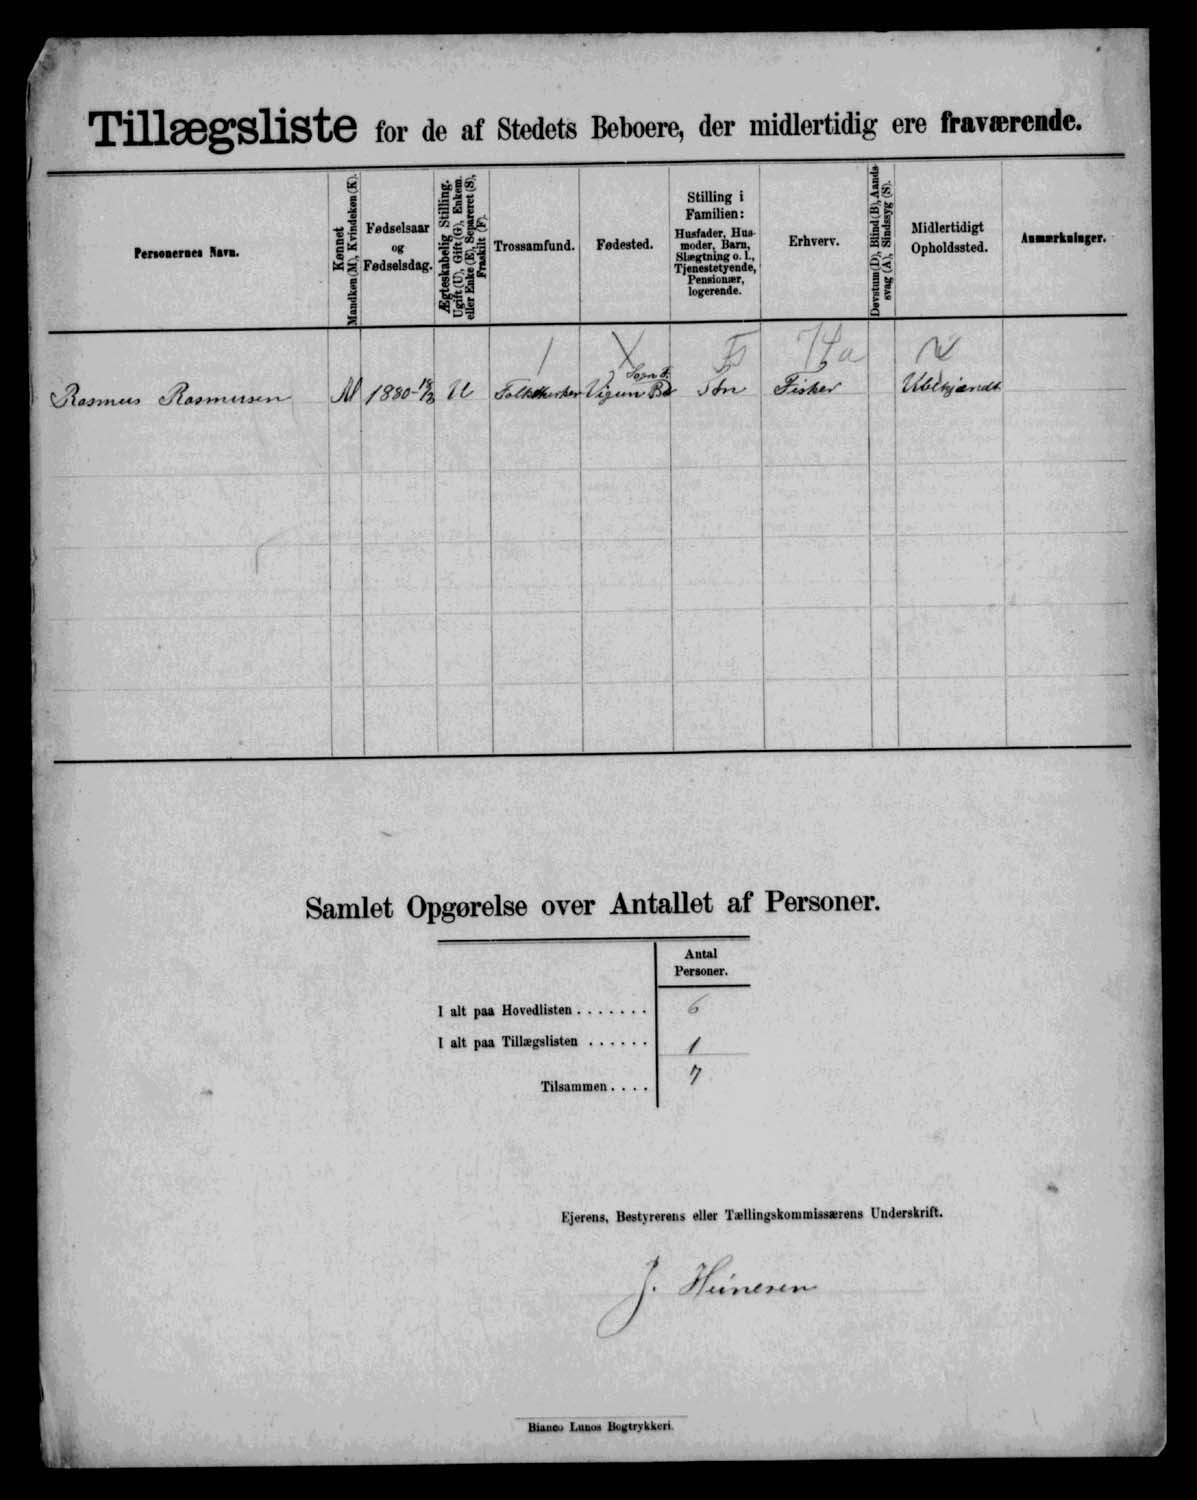 Tillægsliste for de af Stedets Beboere, der midlertidig ere fraværende.
Personernes Navn.
Kønnet
Mandkøn (M), Kvindekøn (K).
Fødselsaar
og
Fødselsdag.
Ægteskabelig Stilling.
Ugift (U), Gift (G), Enkem.
eller Enke (E), Separeret (S),
Fraskilt (F).
Trossamfund.
Fødested.
Stilling i
Familien:
Husfader, Hus-
moder, Barn,
Slægtning o. l.,
Tjenestetyende,
Pensionær,
logerende.
Erhverv.
Døvstum (D), Blind (B), Aands-
svag (A), Sindssyg (S).
Midlertidigt
Opholdssted.
Anmærkninger.
Rasmus Rasmussen M 1880 U Folkekirken Sogn Søn Fisker Ubekjendt
Samlet Opgørelse over Antallet af Personer.
Antal
Personer.
I alt paa Hovedlisten . . . . . . . 6
I alt paa Tillægslisten . . . . . . 1
Tilsammen . . . . 7
Ejerens, Bestyrerens eller Tællingskommissærens Underskrift.
J. Heinesen
Bianco Lunos Bogtrykkeri.